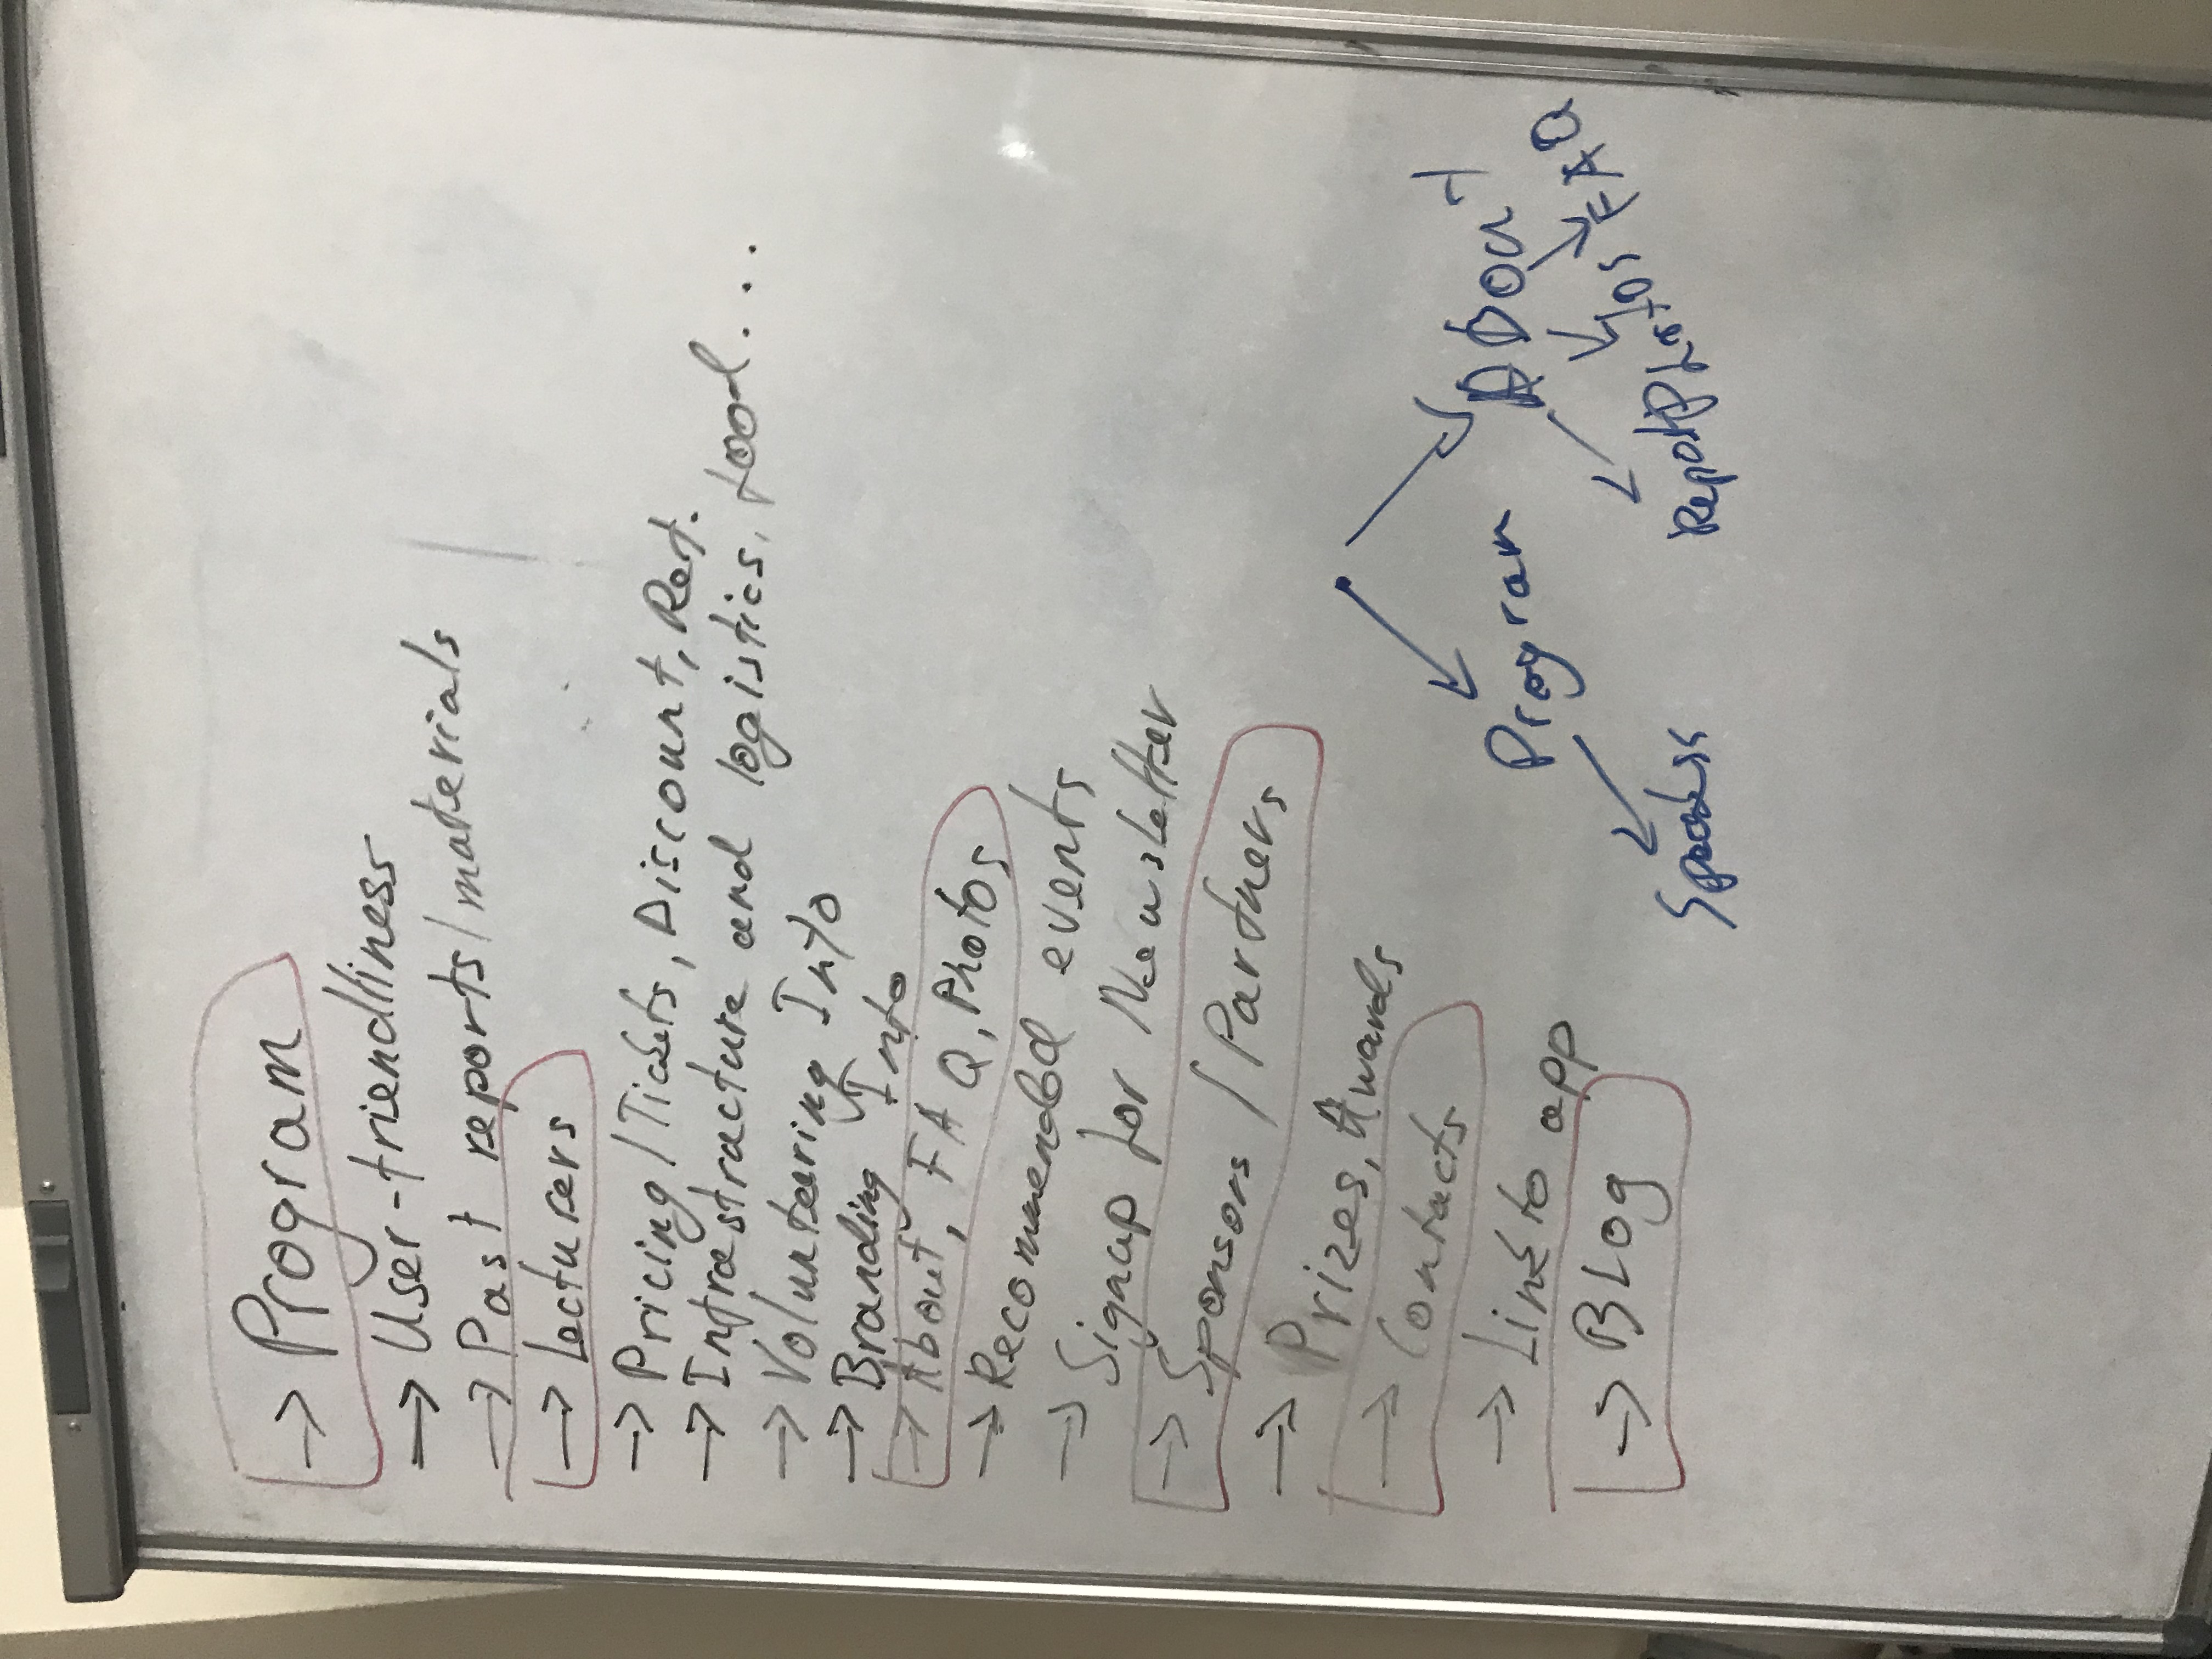 → Program
→ User-friendliness
→ Past reports/materials
→ Lecturers
→ Pricing/Tickets, Discount, Ref.
→ Infrastracture and logistics, food...
→ Volunteering Info
→ Branding Info
→ About, FAQ, Photos
→ Recommended events
→ Signup for Newsletter
→ Sponsors / Partners
→ Prizes, Awards
→ Contacts
→ Link to app
→ BLog
Program About
Photos FAQ